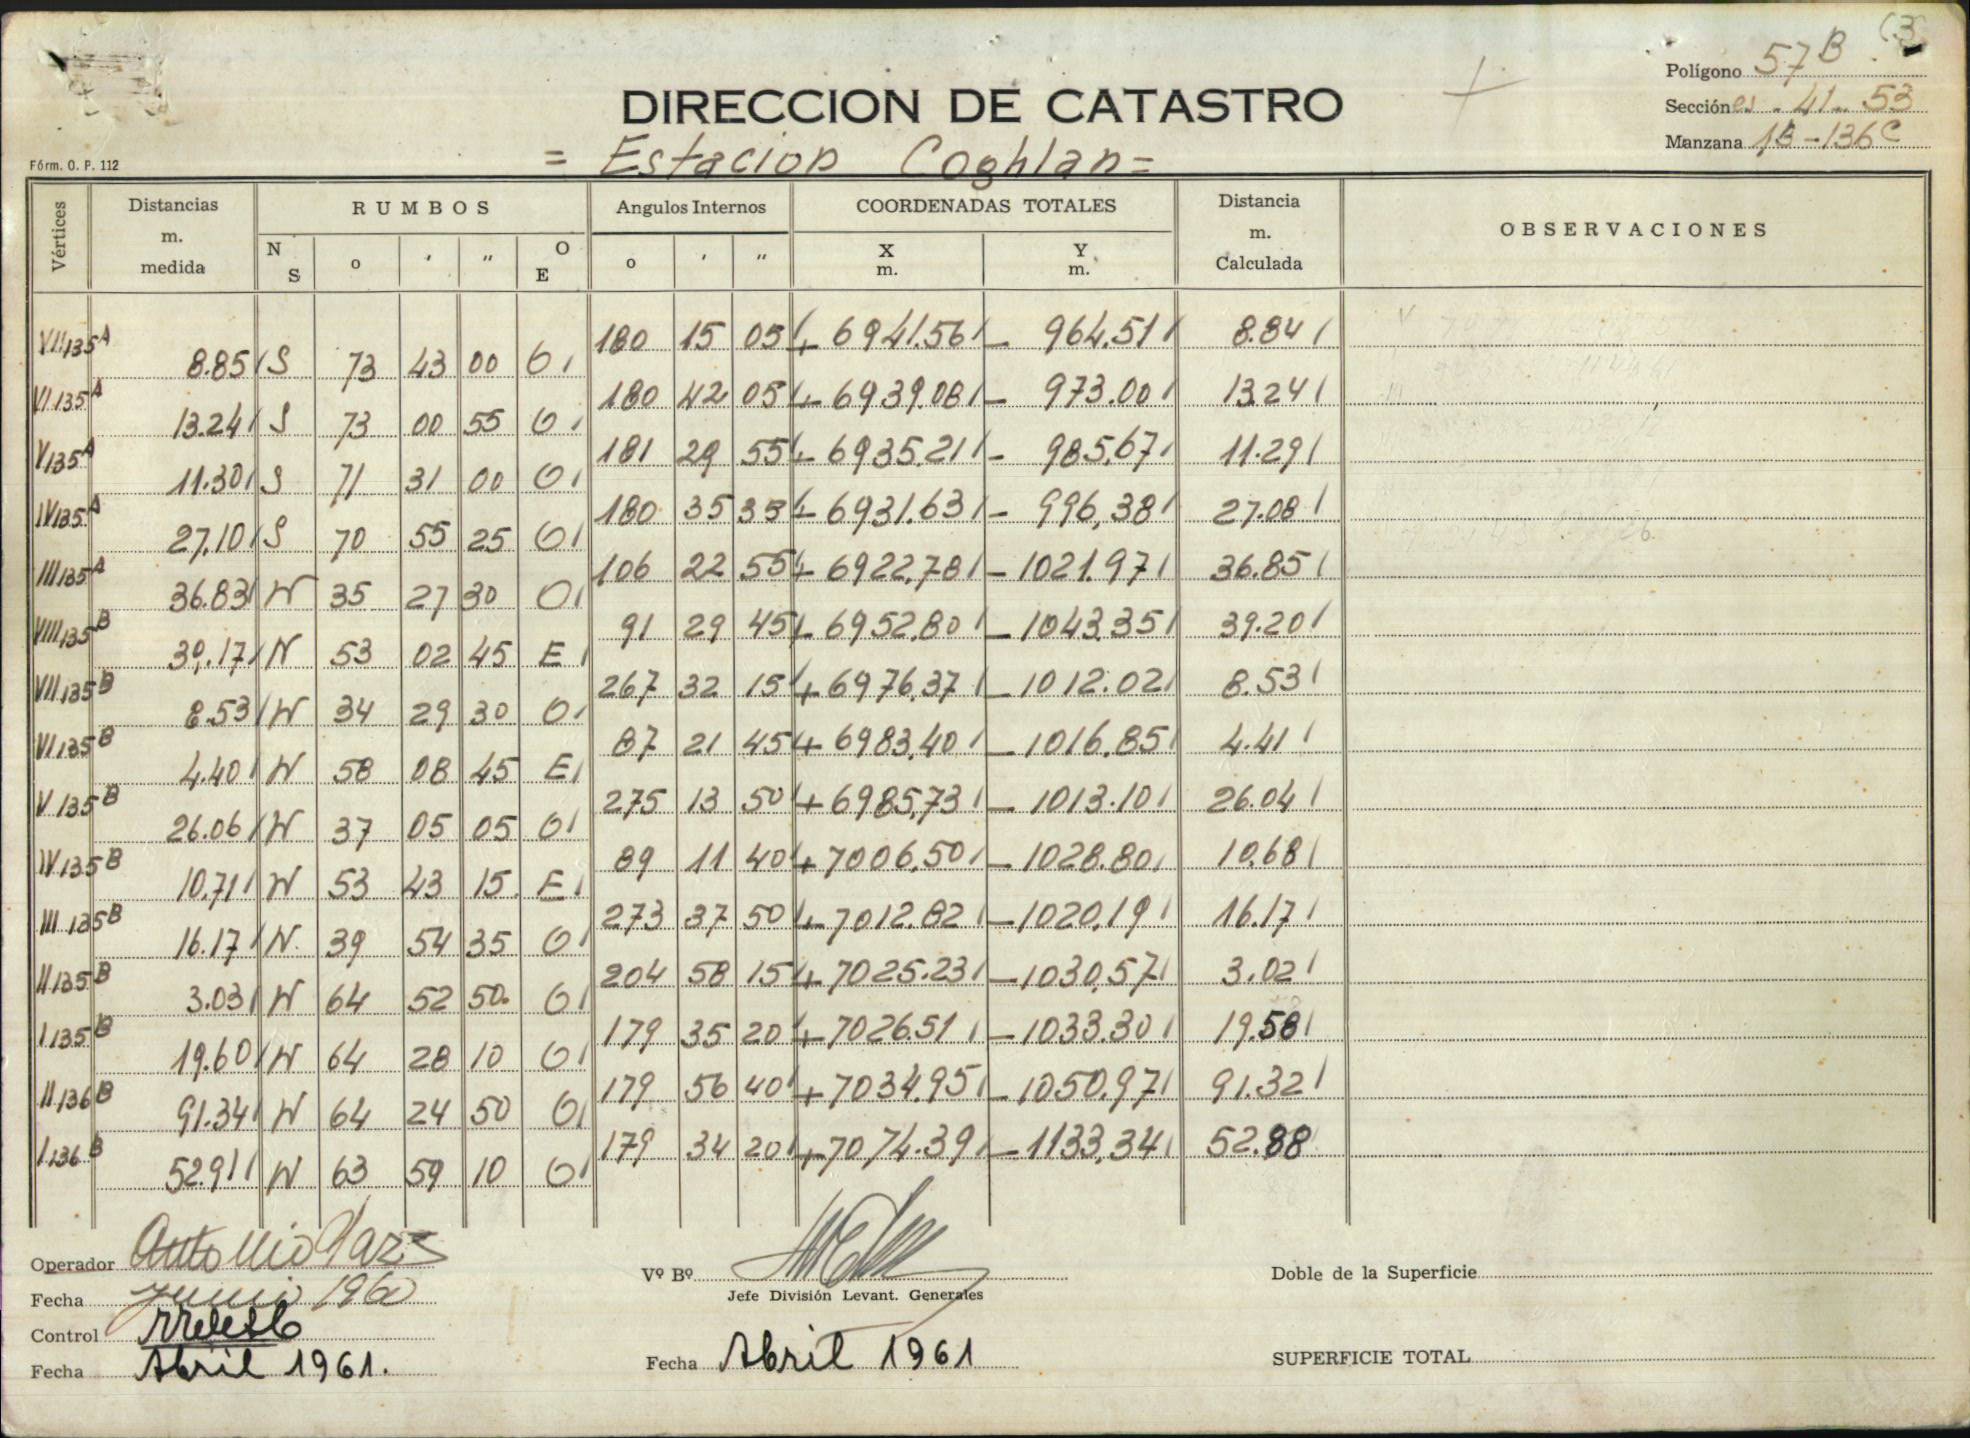 (3
Polígono 57B
DIRECCION DE CATASTRO
Secciónes . 41 .. 53
Manzana 1B-136C
Fórm. O. P. 112
= Estacion Coghlan =
Vértices Distancias m. medida RUMBOS Angulos Internos COORDENADAS TOTALES Distancia m. Calculada OBSERVACIONES
N S o ′ ″ O E o ′ ″ X m. Y m.
VII135A 180 15 05 + 6941.56 - 964.51 8.84
8.85 S 73 43 00 O
VI135A 180 42 05 + 6939.08 - 973.00 13.24
13.24 S 73 00 55 O
V135A 181 29 55 + 6935.21 - 985.67 11.29
11.30 S 71 31 00 O
IV135A 180 35 35 + 6931.63 - 996,38 27.08
27.10 S 70 55 25 O
III135A 106 22 55 + 6922,78 - 1021.97 36.85
36.83 N 35 27 30 O
VIII135B 91 29 45 + 6952.80 - 1043.35 39.20
39.17 N 53 02 45 E
VII135B 267 32 15 + 6976,37 - 1012.02 8.53
8.53 N 34 29 30 O
VI135B 87 21 45 + 6983,40 - 1016.85 4.41
4.40 N 58 08 45 E
V135B 275 13 50 + 6985,73 - 1013.10 26.04
26.06 N 37 05 05 O
IV135B 89 11 40 + 7006,50 - 1028.80 10.68
10.71 N 53 43 15 E
III135B 273 37 50 + 7012.82 - 1020,19 16.17
16.17 N 39 54 35 O
II135B 204 58 15 + 7025.23 - 1030,57 3.02
3.03 N 64 52 50 O
I135B 179 35 20 + 7026.51 - 1033.30 19.58
19.60 N 64 28 10 O
II136B 179 56 40 + 7034.95 - 1050.97 91.32
91.34 N 64 24 50 O
I136B 179 34 20 + 7074.39 - 1133,34 52.88
52.91 N 63 59 10 O
Operador Antonio
Vº Bº
Doble de la Superficie
Jefe División Levant. Generales
Fecha Junio 1960
Control
Fecha Abril 1961.
Fecha Abril 1961
SUPERFICIE TOTAL